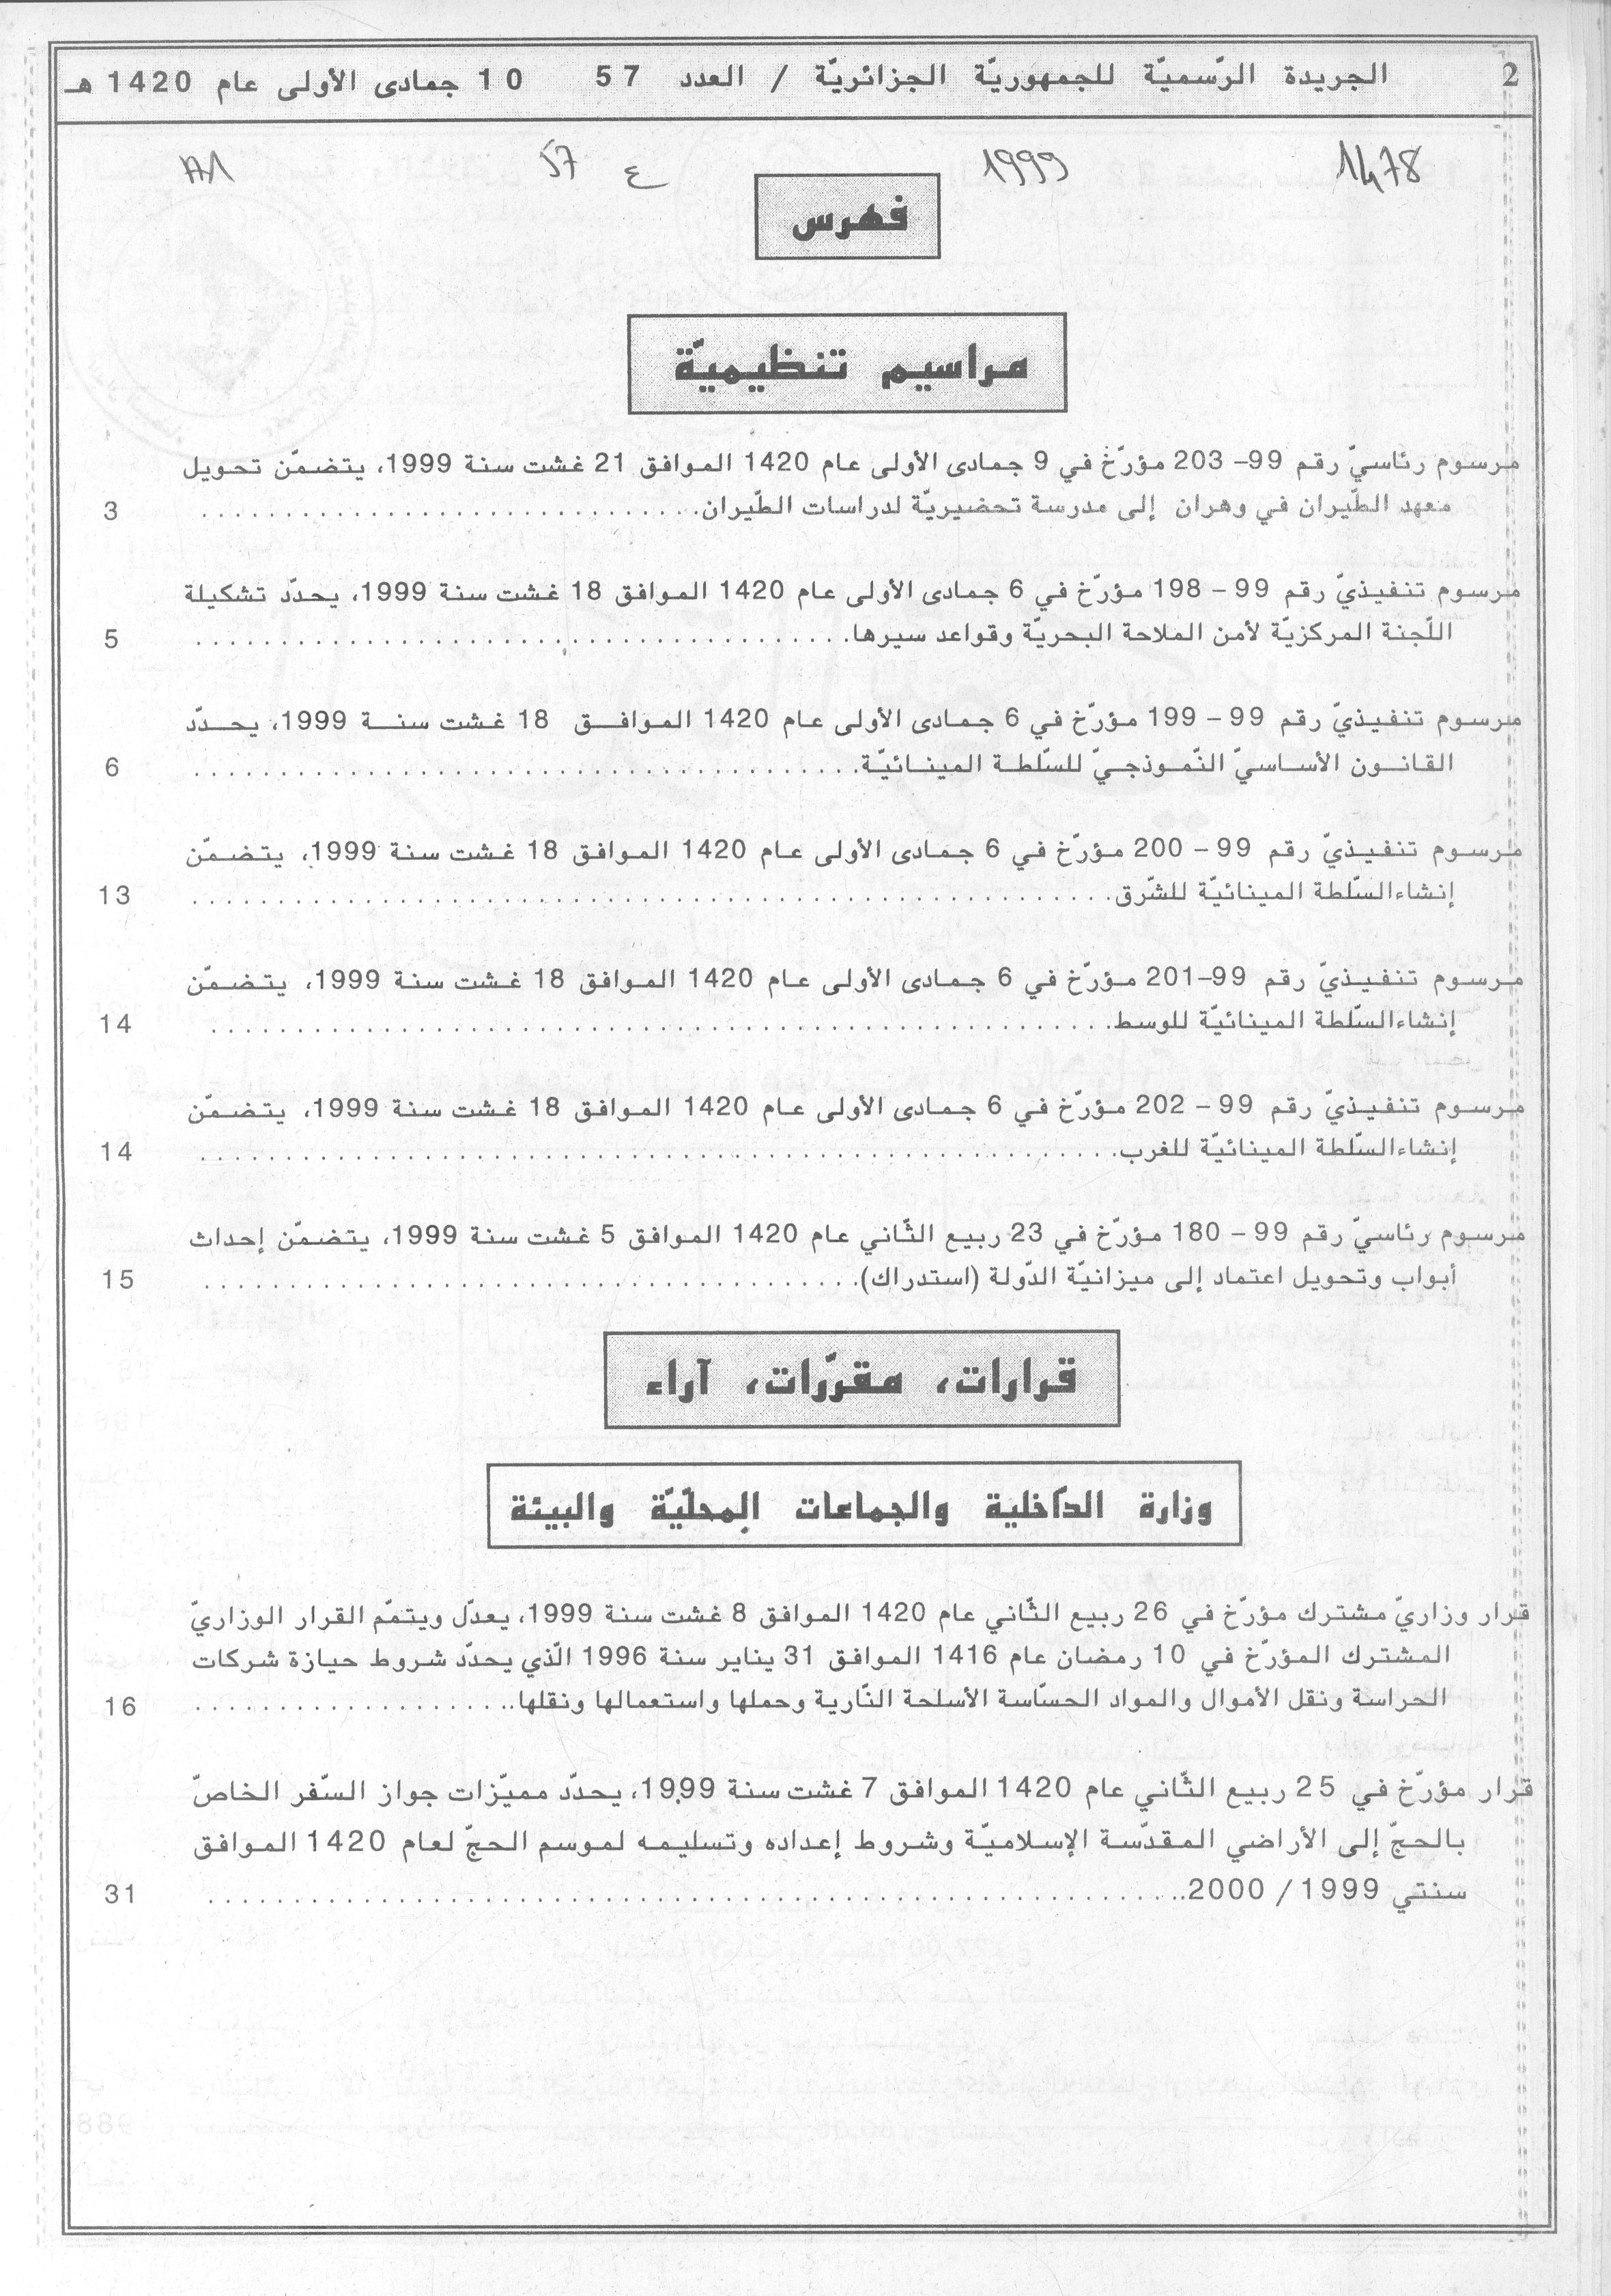 2 الجريدة الرّسميّة للجمهوريّة الجزائريّة / العدد 57 10 جمادى الأولى عام 1420 هـ
1478 1999 ع 57
فهرس
مراسيم تنظيميّة
مرسوم رئاسيّ رقم 99- 203 مؤرّخ في 9 جمادى الأولى عام 1420 الموافق 21 غشت سنة 1999، يتضمّن تحويل
معهد الطّيران في وهران إلى مدرسة تحضيريّة لدراسات الطّيران. 3
مرسوم تنفيذيّ رقم 99 - 198 مؤرّخ في 6 جمادى الأولى عام 1420 الموافق 18 غشت سنة 1999، يحدّد تشكيلة
اللّجنة المركزيّة لأمن الملاحة البحريّة وقواعد سيرها. 5
مرسوم تنفيذيّ رقم 99 - 199 مؤرّخ في 6 جمادى الأولى عام 1420 الموافق 18 غشت سنة 1999، يحدّد
القانون الأساسيّ النّموذجيّ للسّلطة المينائيّة. 6
مرسوم تنفيذيّ رقم 99 - 200 مؤرّخ في 6 جمادى الأولى عام 1420 الموافق 18 غشت سنة 1999، يتضمّن
إنشاءالسّلطة المينائيّة للشّرق. 13
مرسوم تنفيذيّ رقم 99-201 مؤرّخ في 6 جمادى الأولى عام 1420 الموافق 18 غشت سنة 1999، يتضمّن
إنشاءالسّلطة المينائيّة للوسط. 14
مرسوم تنفيذيّ رقم 99 - 202 مؤرّخ في 6 جمادى الأولى عام 1420 الموافق 18 غشت سنة 1999، يتضمّن
إنشاءالسّلطة المينائيّة للغرب. 14
مرسوم رئاسيّ رقم 99 - 180 مؤرّخ في 23 ربيع الثّاني عام 1420 الموافق 5 غشت سنة 1999، يتضمّن إحداث
أبواب وتحويل اعتماد إلى ميزانيّة الدّولة (استدراك). 15
قرارات، مقرّرات، آراء
وزارة الدّاخلية والجماعات المحلّيّة والبيئة
قرار وزاريّ مشترك مؤرّخ في 26 ربيع الثّاني عام 1420 الموافق 8 غشت سنة 1999، يعدّل ويتمّم القرار الوزاريّ
المشترك المؤرّخ في 10 رمضان عام 1416 الموافق 31 يناير سنة 1996 الّذي يحدّد شروط حيازة شركات
الحراسة ونقل الأموال والمواد الحسّاسة الأسلحة النّارية وحملها واستعمالها ونقلها.. 16
قرار مؤرّخ في 25 ربيع الثّاني عام 1420 الموافق 7 غشت سنة 1999، يحدّد مميّزات جواز السّفر الخاصّ
بالحجّ إلى الأراضي المقدّسة الإسلاميّة وشروط إعداده وتسليمه لموسم الحجّ لعام 1420 الموافق
سنتي 1999 / 2000.. 31